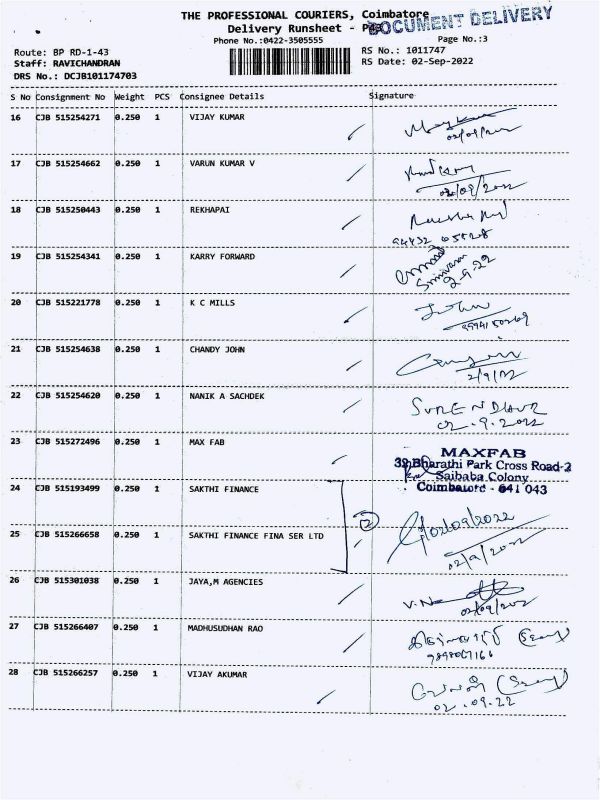 THE PROFESSIONAL COURIERS, Coimbatore
DOCUMENT DELIVERY
Delivery Runsheet -
Phone No.:0422-3505555
Page No.:3
Route: BP RD-1-43
RS No.: 1011747
Staff: RAVICHANDRAN
RS Date: 02-Sep-2022
DRS No.: DCJB101174703
S No Consignment No Weight PCS Consignee Details Signature
16 CJB 515254271 0.250 1 VIJAY KUMAR
17 CJB 515254662 0.250 1 VARUN KUMAR V
02/09/2022
18 CJB 515250443 0.250 1 REKHAPAI
94432 05528
19 CJB 515254341 0.250 1 KARRY FORWARD
Srinivasan
2-9-22
20 CJB 515221778 0.250 1 K C MILLS
John
21 CJB 515254638 0.250 1 CHANDY JOHN
2/9/22
22 CJB 515254620 0.250 1 NANIK A SACHDEK
02.9.2022
23 CJB 515272496 0.250 1 MAX FAB
MAXFAB
39,Bharathi Park Cross Road-2
Saibaba Colony
Coimbatore - 641 043
24 CJB 515193499 0.250 1 SAKTHI FINANCE
2
02/09/2022
25 CJB 515266658 0.250 1 SAKTHI FINANCE FINA SER LTD
02/9/2022
26 CJB 515301038 0.250 1 JAYA,M AGENCIES
27 CJB 515266407 0.250 1 MADHUSUDHAN RAO
28 CJB 515266257 0.250 1 VIJAY AKUMAR
02.09.22